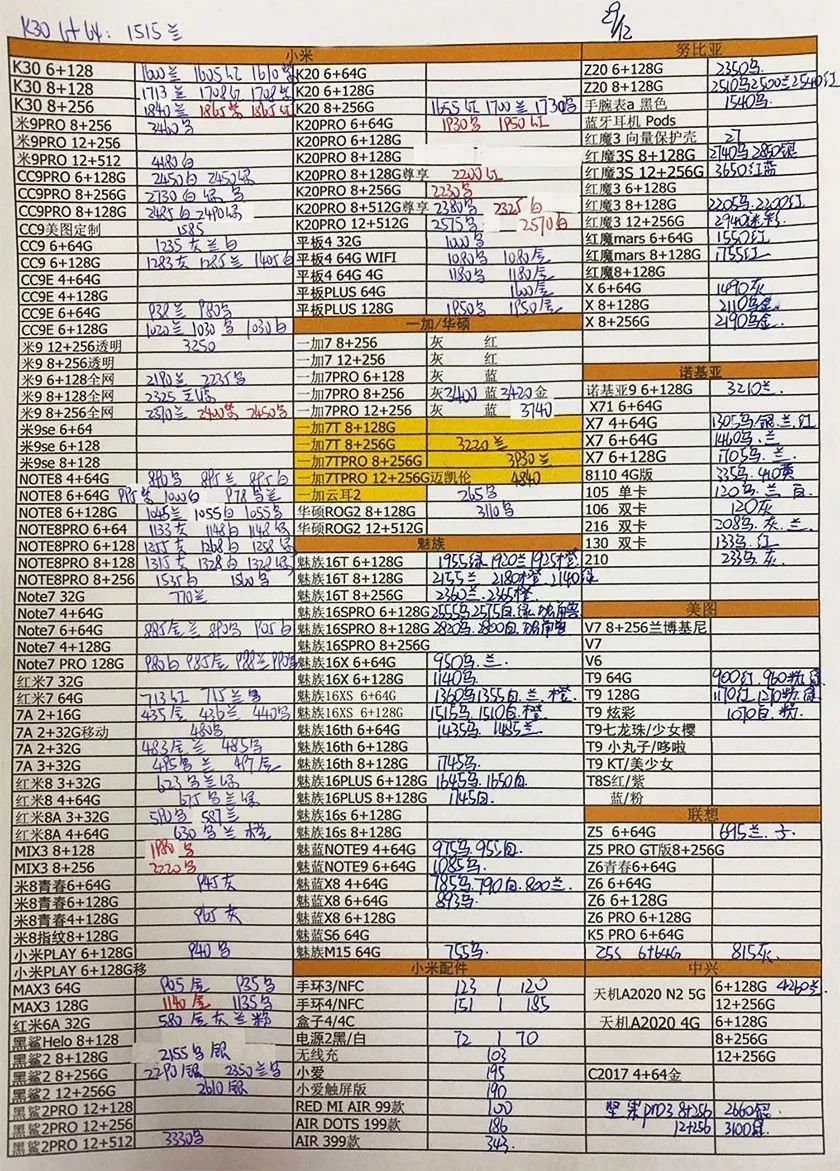 K30 6+64: 1515兰
29/12
小米
K30 6+128 1600兰 1605红 1610紫
K30 8+128 1713兰 1708红 1708紫
K30 8+256 1840兰 1865紫 1865红
米9PRO 8+256 3460乌
米9PRO 12+256
米9PRO 12+512 4480白
CC9PRO 6+128G 2450白 2450绿
CC9PRO 8+256G 2730白 绿 乌
CC9PRO 8+128G 2485白 2490绿
CC9美图定制 1585
CC9 6+64G 1235灰兰白
CC9 6+128G 1283灰 1285兰 1405白
CC9E 4+64G
CC9E 4+128G
CC9E 6+64G 938兰 980乌
CC9E 6+128G 1020兰 1030乌 1030白
米9 12+256透明 3250
米9 8+256透明
米9 6+128全网 2190兰 2235乌
米9 8+128全网 2325
米9 8+256全网 2370兰 2400紫 2450乌
米9se 6+64
米9se 6+128
米9se 8+128
NOTE8 4+64G 890乌 895兰 895白
NOTE8 6+64G 995紫 1000白 978乌兰
NOTE8 6+128G 1045兰 1055白 1055乌
NOTE8PRO 6+64 1133灰 1148白 1148乌
NOTE8PRO 6+128 1255灰 1268白 1258绿
NOTE8PRO 8+128 1315灰 1328白 1328绿
NOTE8PRO 8+256 1535白 1500乌
Note7 32G 770兰
Note7 4+64G
Note7 6+64G 885金兰 890乌 905白
Note7 4+128G
Note7 PRO 128G 980白 985金 988兰 990乌
红米7 32G
红米7 64G 713红 715兰乌
7A 2+16G 435金 436兰 440乌
7A 2+32G移动 480乌
7A 2+32G 483金兰 485乌
7A 3+32G 495乌兰 497金
红米8 3+32G 623乌兰绿
红米8 4+64G 675乌兰绿
红米8A 3+32G 580乌 587兰
红米8A 4+64G 630乌兰橙
MIX3 8+128 1980乌
MIX3 8+256 3220乌
米8青春6+64G 945灰
米8青春6+128G
米8青春4+128G 965灰
米8指纹8+128G
小米PLAY 6+128G 940乌
小米PLAY 6+128G移
MAX3 64G 905金 935乌
MAX3 128G 1140金 1135乌
红米6A 32G 580金灰兰粉
黑鲨Helo 8+128
黑鲨2 8+128G 2155乌银
黑鲨2 8+256G 2290银 2350兰乌
黑鲨2 12+256G 2610银
黑鲨2PRO 12+128
黑鲨2PRO 12+256
黑鲨2PRO 12+512 3330乌
K20 6+64G
K20 6+128G
K20 8+256G 1655红 1700兰 1730乌
K20PRO 6+64G 1930乌 1950红
K20PRO 6+128G
K20PRO 8+128G
K20PRO 8+128G尊享 2200红
K20PRO 8+256G 2230乌
K20PRO 8+512G尊享 2380乌 2325白
K20PRO 12+512G 2575乌 2570白
平板4 32G 1000乌
平板4 64G WIFI 1080乌 1080金
平板4 64G 4G 1180乌 1180金
平板PLUS 64G 1600金
平板PLUS 128G 1950乌 1950金
一加/华硕
一加7 8+256 灰 红
一加7 12+256 灰 红
一加7PRO 6+128 灰 蓝
一加7PRO 8+256 灰 2400 蓝 3420金
一加7PRO 12+256 灰 蓝 3740
一加7T 8+128G
一加7T 8+256G 3220兰
一加7TPRO 8+256G 3930兰
一加7TPRO 12+256G迈凯伦 4840
一加云耳2 265乌
华硕ROG2 8+128G 3110乌
华硕ROG2 12+512G
魅族
魅族16T 6+128G 1955绿 1920兰 1925橙
魅族16T 8+128G 2155兰 2180橙 2140绿
魅族16T 8+256G 2360兰 2365橙
魅族16SPRO 6+128G 2555乌 2575白.绿
魅族16SPRO 8+128G 2820乌 2800白
魅族16SPRO 8+256G
魅族16X 6+64G 950乌.兰.
魅族16X 6+128G 1140乌.
魅族16XS 6+64G 1360乌 1355白.兰.橙
魅族16XS 6+128G 1515乌 1510白.橙
魅族16th 6+64G 1435乌 1485兰
魅族16th 6+128G
魅族16th 8+128G 1745乌.
魅族16PLUS 6+128G 1645乌.1650白.
魅族16PLUS 8+128G 1745白.
魅族16s 6+128G
魅族16s 8+128G
魅蓝NOTE9 4+64G 975乌.955白.
魅蓝NOTE9 6+64G 1085乌.
魅蓝X8 4+64G 785乌.790白.800兰.
魅蓝X8 6+64G 893乌.
魅蓝X8 6+128G
魅蓝S6 64G
魅族M15 64G 755乌.
小米配件
手环3/NFC 123 | 120
手环4/NFC 151 | 185
盒子4/4C
电源2黑/白 72 | 70
无线充 103
小爱 195
小爱触屏版 190
RED MI AIR 99款 100
AIR DOTS 199款 186
AIR 399款 343.
努比亚
Z20 6+128G 2350乌
Z20 8+128G 2510乌 2500兰 2540红
手腕表a 黑色 1540乌.
蓝牙耳机 Pods
红魔3 向量保护壳 27
红魔3S 8+128G 2740乌 2850银
红魔3S 12+256G 3650红蓝
红魔3 6+128G
红魔3 8+128G 2205乌.2200红
红魔3 12+256G 2940迷彩
红魔mars 6+64G 1550红
红魔mars 8+128G 1755红
红魔8+128G
X 6+64G 1490灰
X 8+128G 2110乌金.
X 8+256G 2190乌金.
诺基亚
诺基亚9 6+128G 3210兰.
X71 6+64G
X7 4+64G 1305乌.银.兰.红
X7 6+64G 1460乌.兰
X7 6+128G 1705乌.兰.
8110 4G版 335乌.410黄
105 单卡 120乌.兰 白
106 双卡 120灰
216 双卡 208乌.灰.兰.
130 双卡 133乌.红
210 233乌.灰.
美图
V7 8+256兰博基尼
V7
V6
T9 64G 900红.960粉
T9 128G 1170红.1270粉
T9 炫彩 1070白.粉.
T9七龙珠/少女樱
T9 小丸子/哆啦
T9 KT/美少女
T8S红/紫
蓝/粉
联想
Z5 6+64G 1695兰.
Z5 PRO GT版8+256G
Z6青春6+64G
Z6 6+64G
Z6 6+128G
Z6 PRO 6+128G
K5 PRO 6+64G
Z5S 6+64G 815灰.
中兴
天机A2020 N2 5G 6+128G 4260兰.
12+256G
天机A2020 4G 6+128G
8+256G
12+256G
C2017 4+64金
坚果pro3 8+256 2660银
12+256 3100银.